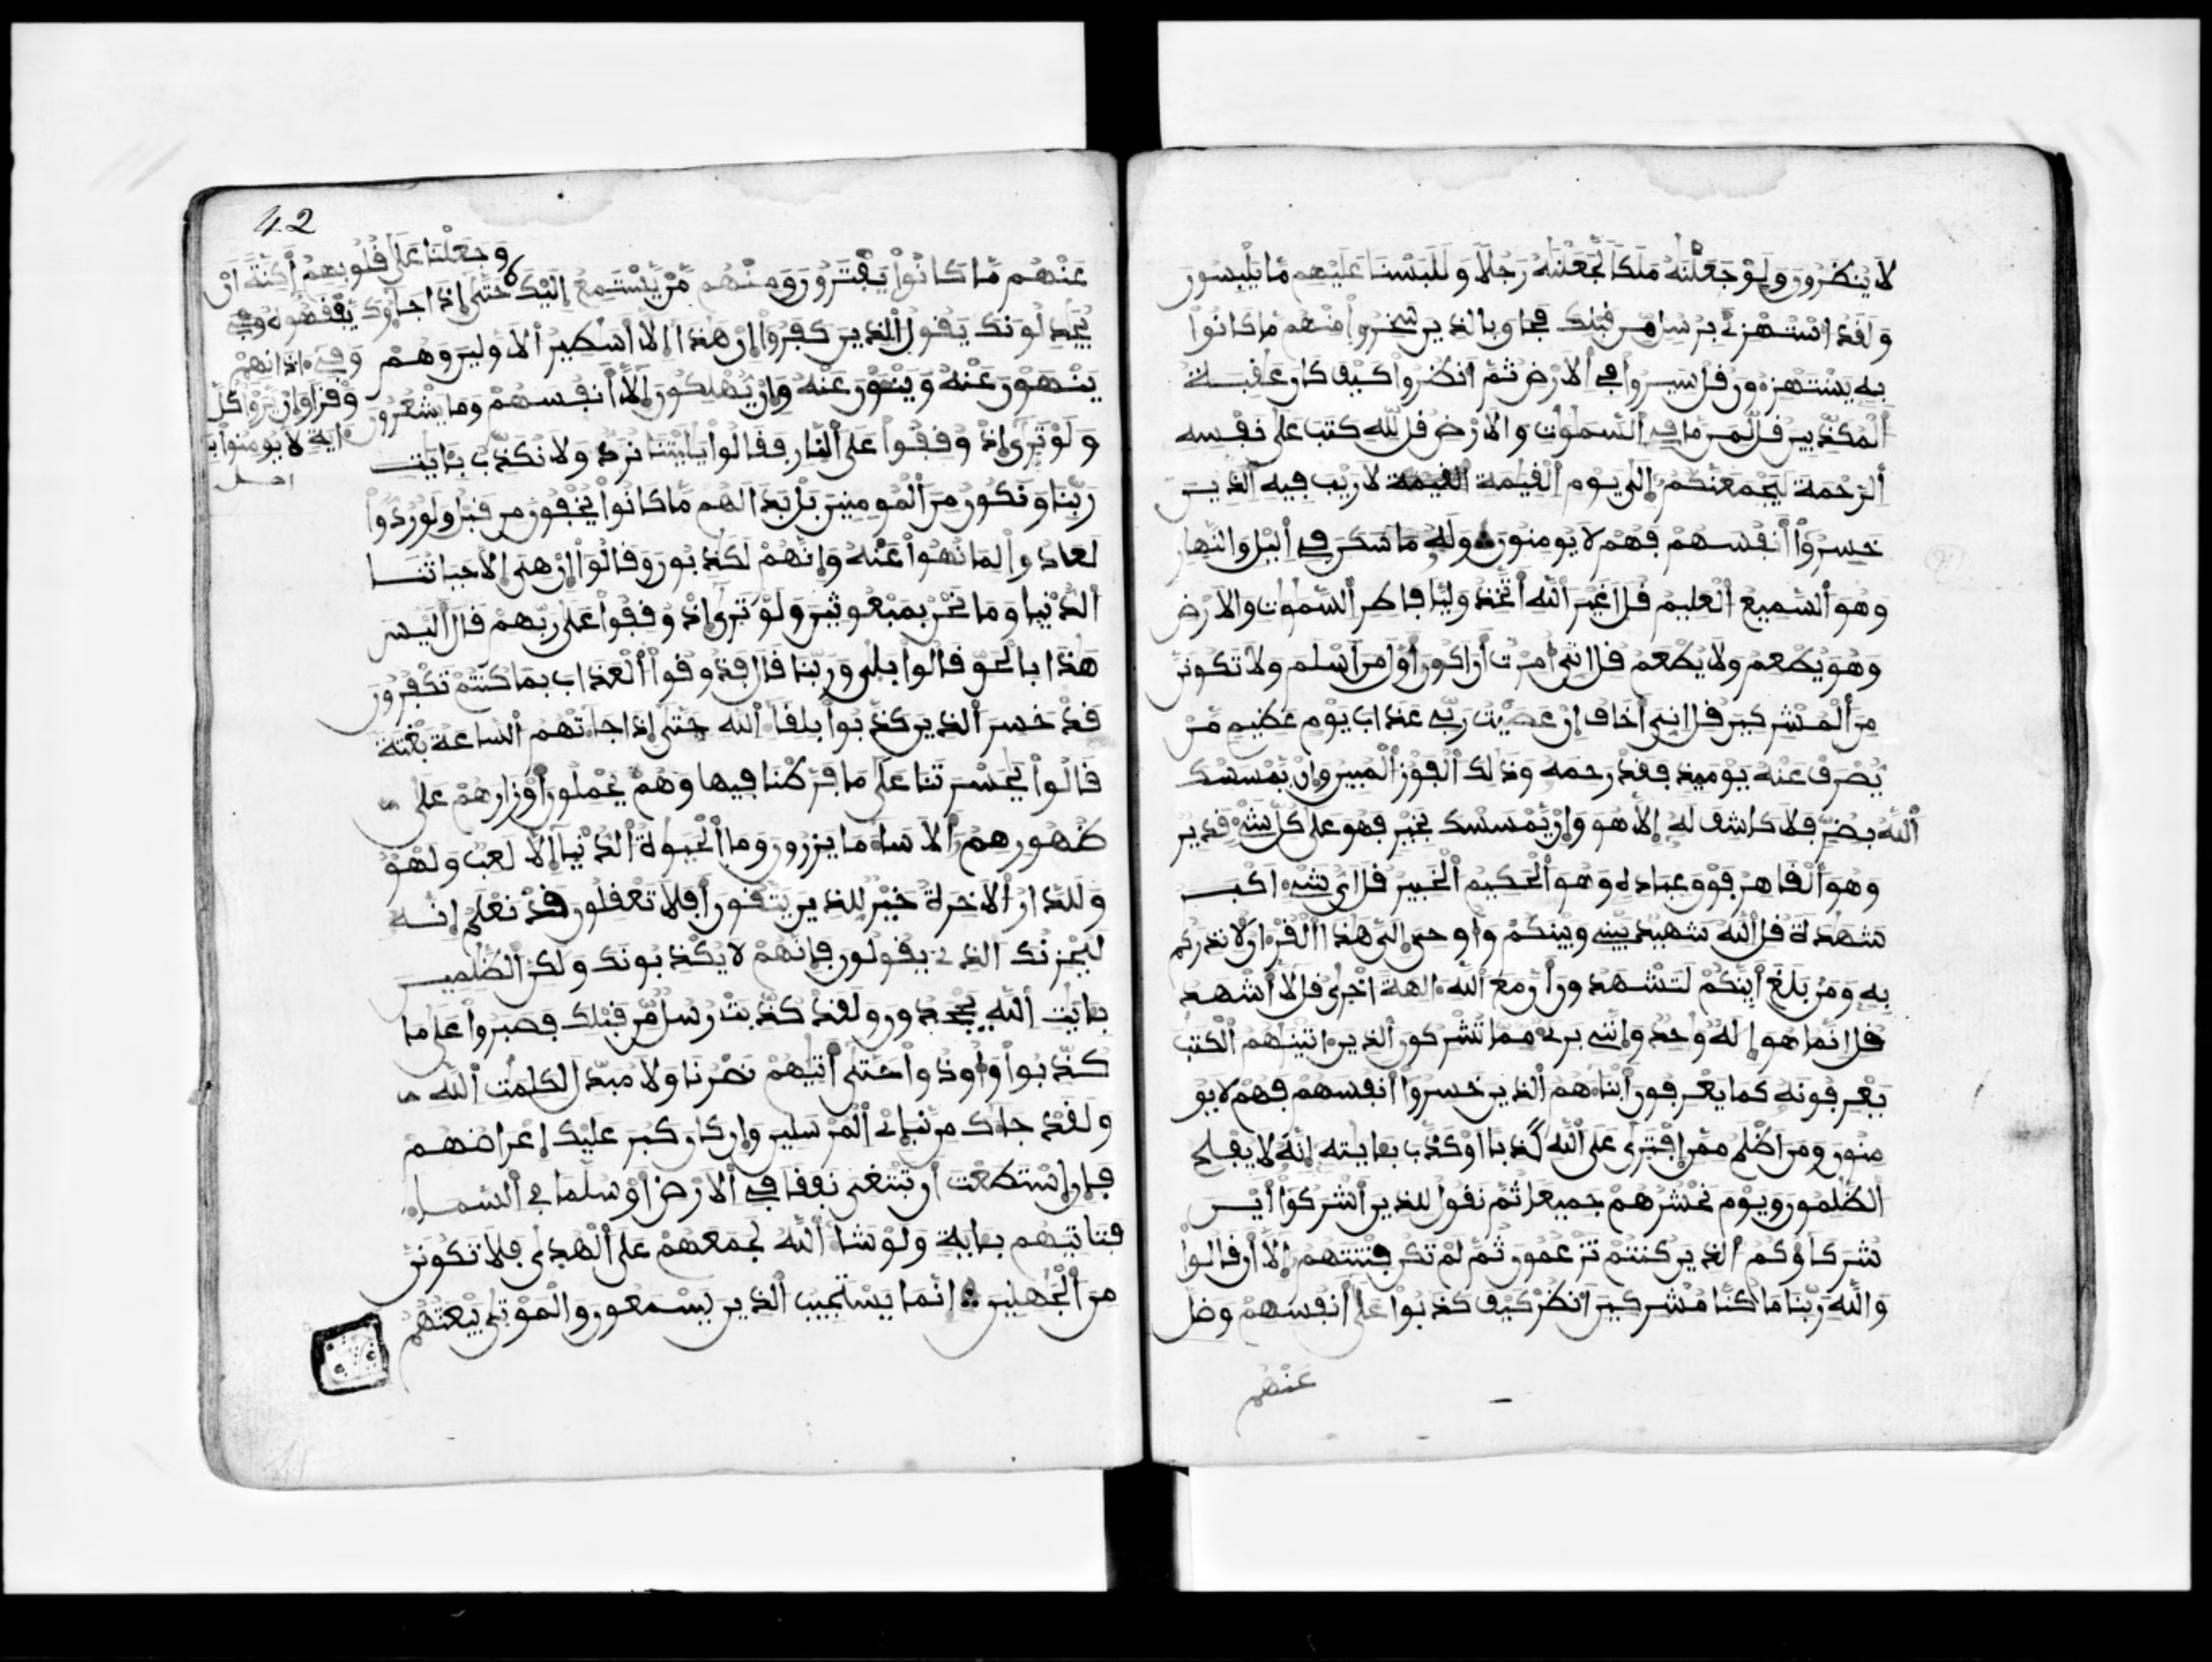 لا ينظرون ولو جعلنه ملكا لجعلنه رجلا وللبسنا عليهم ما يلبسون
ولقد استهزئ برسل من قبلك فحاق بالذين سخروا منهم ما كانوا
به يستهزءون قل سيروا في الارض ثم انظروا كيف كان عقبة
المكذبين قل لمن ما في السموت والارض قل لله كتب على نفسه
الرحمة ليجمعنكم الى يوم القيمة القيمة لا ريب فيه الذين
خسروا أنفسهم فهم لا يومنون وله ما سكن في اليل والنهار
وهو السميع العليم قل اغير الله أتخذ وليا فاطر السموت والارض
وهو يطعم ولا يطعم قل اني أمرت أن اكون أول من أسلم ولا تكونن
من المشركين قل اني أخاف إن عصيت ربي عذاب يوم عظيم من
يصرف عنه يوميذ فقد رحمه وذلك الفوز المبين وان يمسسك
الله بضر فلا كاشف له إلا هو وإن يمسسك بخير فهو على كل شيء قدير
وهو القاهر فوق عباده وهو الحكيم الخبير قل اي شيء اكبر
شهدة قل الله شهيد بيني وبينكم وأوحي إلي هذا القرءان لانذركم
به ومن بلغ أينكم لتشهدون أن مع الله ءالهة اخرى قل لا أشهد
قل انما هو إله وحد وإنني بريء مما تشركون الذين ءاتينهم الكتب
يعرفونه كما يعرفون أبناءهم الذين خسروا أنفسهم فهم لا يو
منون ومن اظلم ممن إفترى على الله كذبا او كذب بءايته إنه لا يفلح
الظلمون ويوم نحشرهم جميعا ثم نقول للذين أشركوا أين
شركاؤكم الذين كنتم تزعمون ثم لم تكن فتنتهم إلا أن قالوا
والله ربنا ما كنا مشركين انظر كيف كذبوا على أنفسهم وضل
عنهم
42
عنهم ما كانوا يفترون ومنهم من يستمع إليك حتى إذا جاءوك
يجدلونك يقول الذين كفروا إن هذا إلا أسطير الاولين وهم
ينهون عنه وينئون عنه وإن يهلكون إلا أنفسهم وما يشعرون
ولو ترى إذ وقفوا على النار فقالوا يليتنا نرد ولا نكذب بءايت
ربنا ونكون من المومنين بل بدا لهم ما كانوا يخفون من قبل ولو ردوا
لعادوا لما نهوا عنه وإنهم لكذبون وقالوا إن هي إلا حياتنا
الدنيا وما نحن بمبعوثين ولو ترى إذ وقفوا على ربهم قال أليس
هذا بالحق قالوا بلى وربنا قال فذوقوا العذاب بما كنتم تكفرون
قد خسر الذين كذبوا بلقاء الله حتى إذا جاءتهم الساعة بغتة
قالوا يحسرتنا على ما فرطنا فيها وهم يحملون أوزارهم على
ظهورهم ألا ساء ما يزرون وما الحيوة الدنيا إلا لعب ولهو
وللدار الاخرة خير للذين يتقون أفلا تعقلون قد نعلم إنه
ليحزنك الذي يقولون فإنهم لا يكذبونك ولكن الظلمين
بءايت الله يجحدون ولقد كذبت رسل من قبلك فصبروا على ما
كذبوا وأوذوا حتى أتيهم نصرنا ولا مبدل لكلمت الله
ولقد جاءك من نبإى المرسلين وإن كان كبر عليك إعراضهم
فإن إستطعت أن تبتغي نفقا في الارض أو سلما في السماء
فتاتيهم بءاية ولو شاء الله لجمعهم على الهدى فلا تكونن
من الجهلين انما يستجيب الذين يسمعون والموتى يبعثهم
وجعلنا على قلوبهم أكنة ان
يفقهوه وفي
وفي ءاذانهم
وقرا وان يروا كل
ءاية لا يومنوا بـ
اصل